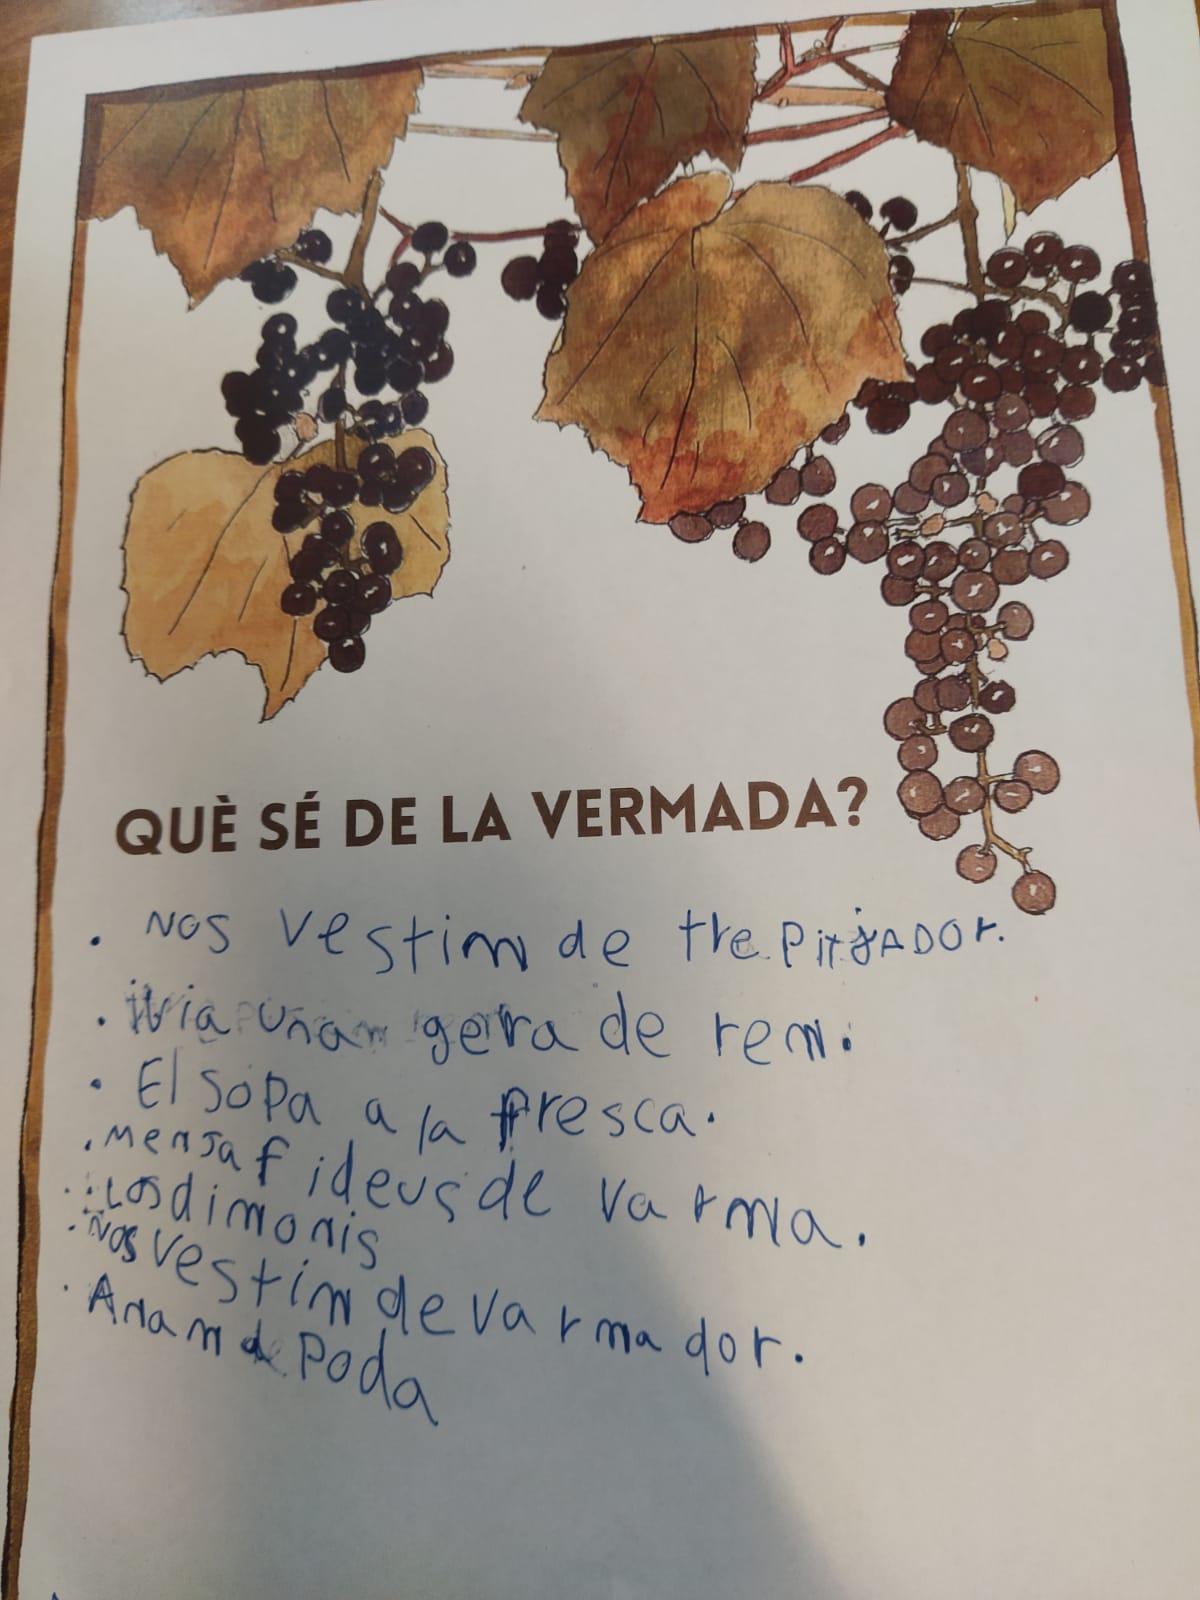 QUÈ SÉ DE LA VERMADA?
. NOS vestim de trepitjADOr.
. iVia unan gerra de rem.
. El SoPa a la fresca.
. Mensa fideus de varma.
. LOS dimonis
. NOS vestim de varmador.
. Anam de Poda